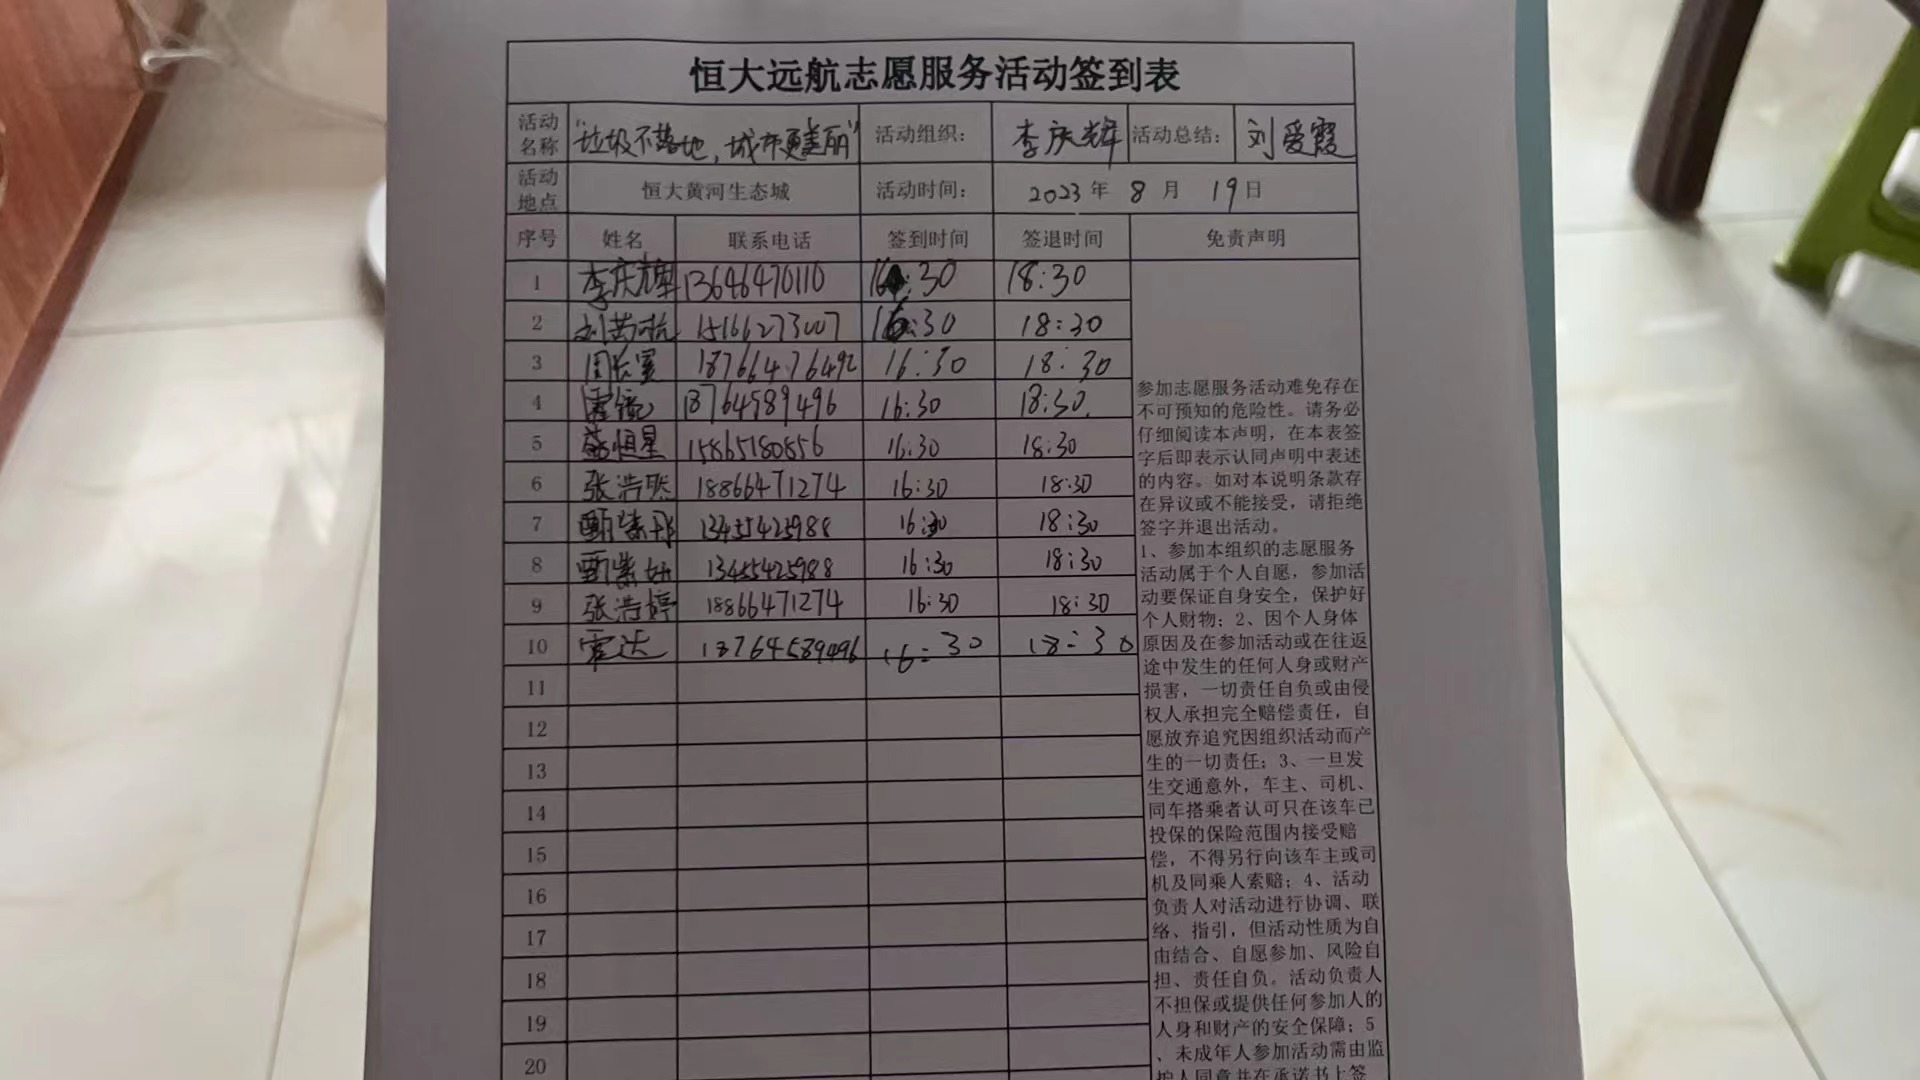 恒大远航志愿服务活动签到表
活动名称 “垃圾不落地，城市更美丽” 活动组织： 李庆辉 活动总结： 刘爱霞
活动地点 恒大黄河生态城 活动时间： 2023年 8月 19日
序号 姓名 联系电话 签到时间 签退时间 免责声明
1 李庆辉 13646470110 16:30 18:30
2 15166273007 16:30 18:30
3 18766476492 16:30 18:30
4 18764589496 16:30 18:30
5 恒星 15865180856 16:30 18:30
6 张浩 18866471274 16:30 18:30
7 甄紫彤 13455425988 16:30 18:30
8 甄紫妍 13455425988 16:30 18:30
9 张浩婷 18866471274 16:30 18:30
10 霍达 18764589496 16:30 18:30
11
12
13
14
15
16
17
18
19
20
参加志愿服务活动难免存在
不可预知的危险性。请务必
仔细阅读本声明，在本表签
字后即表示认同声明中表述
的内容。如对本说明条款存
在异议或不能接受，请拒绝
签字并退出活动。
1、参加本组织的志愿服务
活动属于个人自愿，参加活
动要保证自身安全，保护好
个人财物；2、因个人身体
原因及在参加活动或在往返
途中发生的任何人身或财产
损害，一切责任自负或由侵
权人承担完全赔偿责任，自
愿放弃追究因组织活动而产
生的一切责任；3、一旦发
生交通意外，车主、司机、
同车搭乘者认可只在该车已
投保的保险范围内接受赔
偿，不得另行向该车主或司
机及同乘人索赔；4、活动
负责人对活动进行协调、联
络、指引，但活动性质为自
由结合、自愿参加、风险自
担、责任自负。活动负责人
不担保或提供任何参加人的
人身和财产的安全保障；5
、未成年人参加活动需由监
护人同意并在承诺书上签